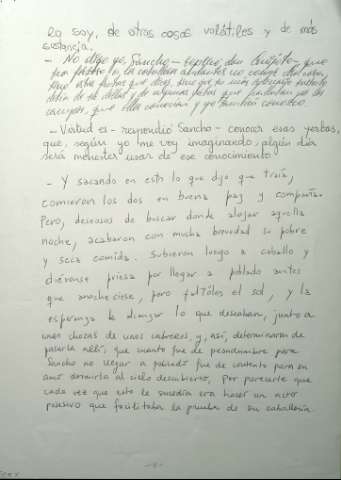 lo soy, de otras cosas volátiles y de más
sustancia.
- No digo yo, Sancho - replicó don Quijote - que
sea forzoso a los caballeros andantes no comer otra cosa
sino esas frutas que dices, sino que su más ordinario sustento
debía de ser dellas, y de algunas yerbas que hallaban por los
campos, que ellos conocían y yo también conozco.
- Virtud es - respondió Sancho - conocer esas yerbas,
que, según yo me voy imaginando, algún día
será menester usar de ese conocimiento
- Y sacando en esto lo que dijo que traía,
comieron los dos en buena paz y compañía.
Pero, deseosos de buscar donde alojar aquella
noche, acabaron con mucha brevedad su pobre
y seca comida. Subieron luego a caballo y
diéronse priesa por llegar a poblado antes
que anocheciese, pero faltóles el sol, y la
esperanza de alcanzar lo que deseaban, junto a
unas chozas de unos cabreros, y, así, determinaron de
pasarla allí; que cuanto fue de pesadumbre para
Sancho no llegar a poblado fue de contento para su
amo dormirla al cielo descubierto, por parecerle que
cada vez que esto le sucedía era hacer un acto
posesivo que facilitaba la prueba de su caballería.